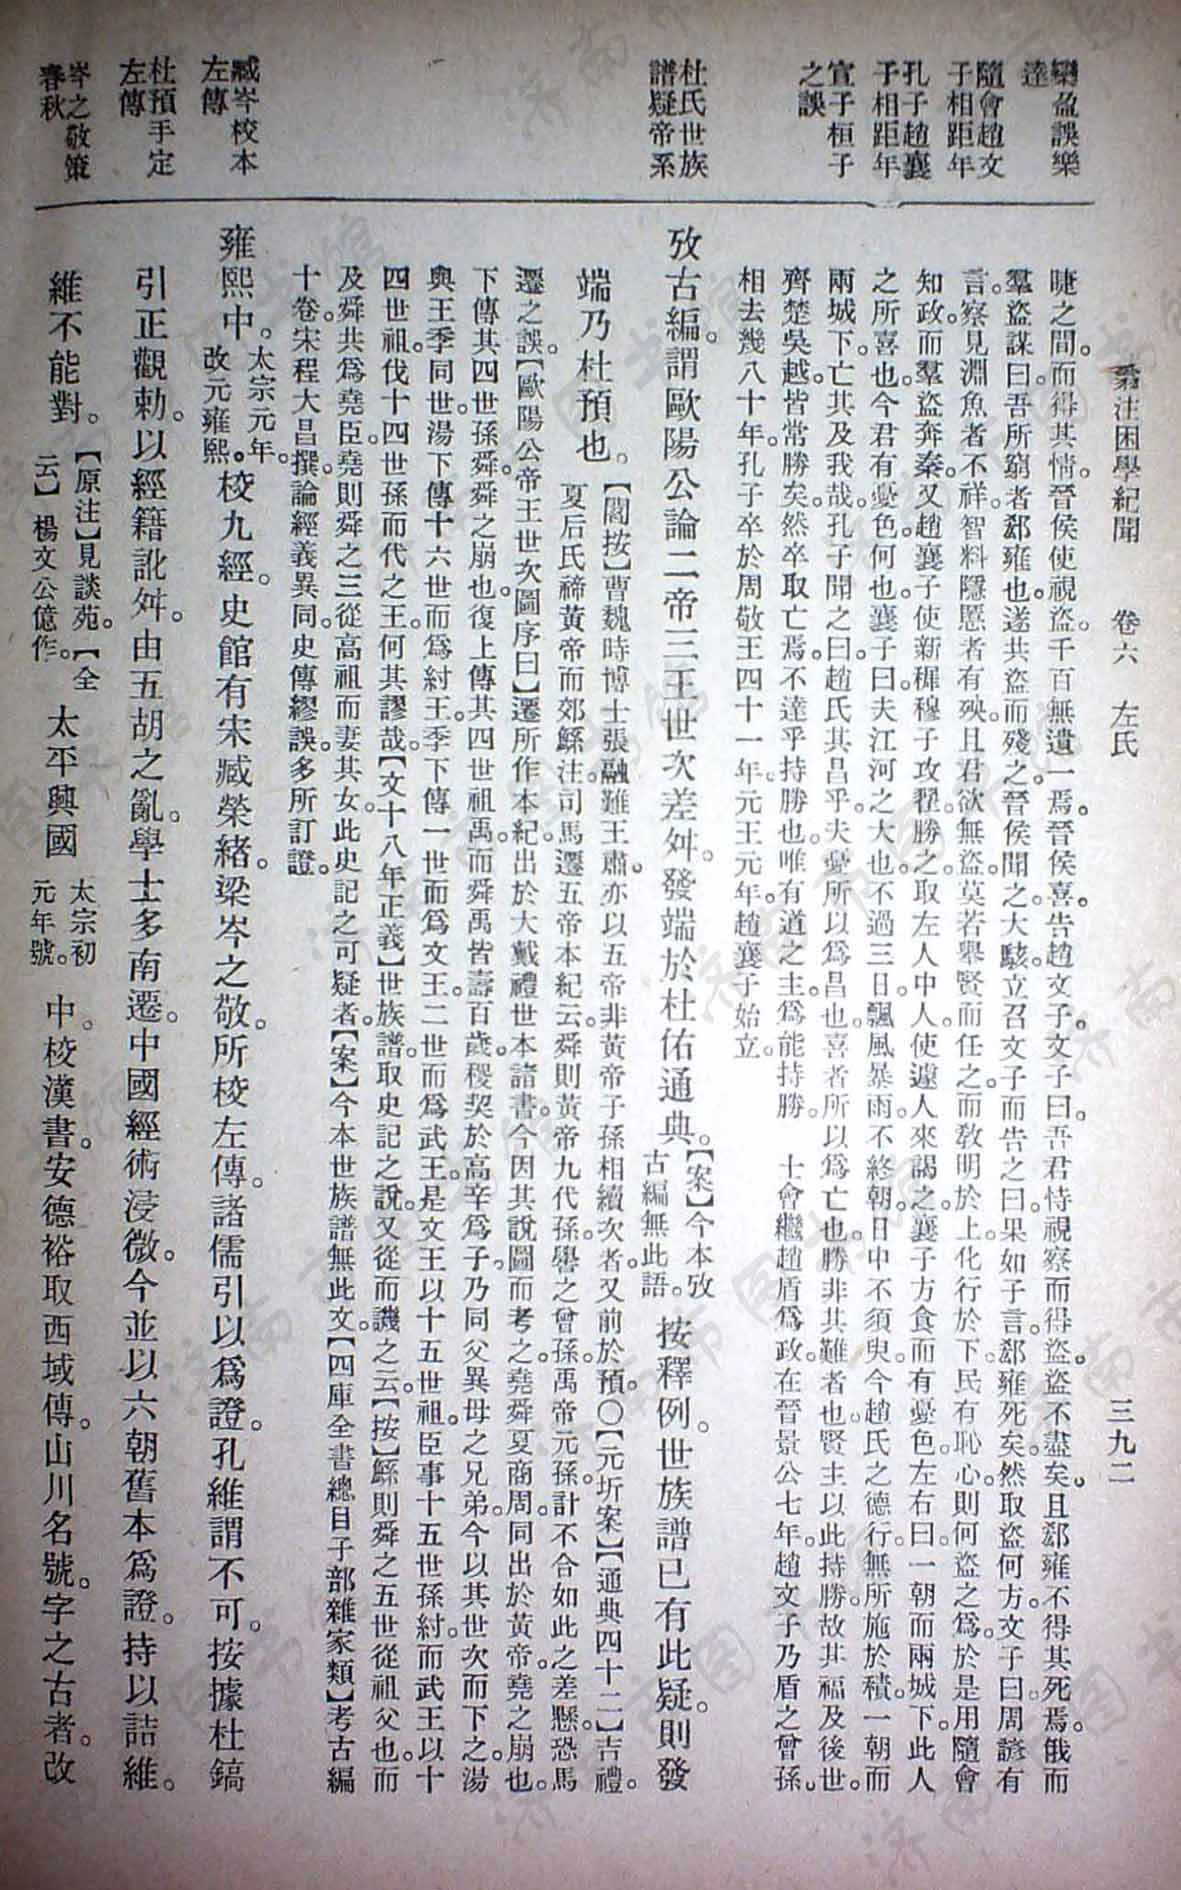 欒盈誤樂
逵
隨會趙文
子相距年
孔子趙襄
子相距年
宣子桓子
之誤
杜氏世族
譜疑帝系
臧岑校本
左傳
杜預手定
左傳
岑之敬策
春秋
翁注困學紀聞 卷六 左氏 三九二
睫之間。而得其情。晉侯使視盜。千百無遺一焉。晉侯喜。告趙文子。文子曰。吾君恃視察而得盜。盜不盡矣。且郄雍不得其死焉。俄而
羣盜謀曰。吾所窮者郄雍也。遂共盜而殘之。晉侯聞之。大駭。立召文子而告之曰。果如子言。郄雍死矣。然取盜何方。文子曰。周諺有
言。察見淵魚者不祥。智料隱慝者有殃。且君欲無盜。莫若舉賢而任之。而敎明於上。化行於下。民有恥心。則何盜之爲。於是用隨會
知政。而羣盜奔秦。又趙襄子使新穉穆子攻翟。勝之。取左人中人。使遽人來謁之。襄子方食而有憂色。左右曰。一朝而兩城下。此人
之所喜也。今君有憂色何也。襄子曰。夫江河之大也。不過三日。飄風暴雨。不終朝。日中不須臾。今趙氏之德行。無所施於積。一朝而
兩城下。亡其及我哉。孔子聞之曰。趙氏其昌乎。夫憂所以爲昌也。喜者所以爲亡也。勝非其難者也。賢主以此持勝。故其福及後世。
齊楚吳越。皆常勝矣。然卒取亡焉。不達乎持勝也。唯有道之主。爲能持勝 士會繼趙盾爲政。在晉景公七年。趙文子乃盾之曾孫。
相去幾八十年。孔子卒於周敬王四十一年。元王元年。趙襄子始立。
攷古編。謂歐陽公論二帝三王世次差舛。發端於杜佑通典。
【案】今本攷
古編無此語。
按釋例。世族譜已有此疑。則發
端乃杜預也。
【閻按】曹魏時博士張融難王肅。亦以五帝非黃帝子孫相續次者。又前於預。〇【元圻案】【通典四十二】吉禮。
夏后氏禘黃帝而郊鯀。注。司馬遷五帝本紀云。舜則黃帝九代孫。嚳之曾孫。禹帝元孫。計不合如此之差懸。恐馬
遷之誤。【歐陽公帝王世次圖序曰】遷所作本紀。出於大戴禮世本諸書。今因其說。圖而考之。堯舜夏商周。同出於黃帝。堯之崩也。
下傳其四世孫舜。舜之崩也。復上傳其四世祖禹。而舜禹皆壽百歲。稷契於高辛爲子。乃同父異母之兄弟。今以其世次而下之。湯
與王季同世。湯下傳十六世而爲紂。王季下傳一世而爲文王。二世而爲武王。是文王以十五世祖。臣事十五世孫紂。而武王以十
四世祖。伐十四世孫而代之王。何其謬哉。【文十八年正義】世族譜。取史記之說。又從而譏之云。【按】鯀則舜之五世從祖父也。而
及舜共爲堯臣。堯則舜之三從高祖而妻其女。此史記之可疑者。【案】今本世族譜無此文。【四庫全書總目子部雜家類】考古編
十卷。宋程大昌撰。論經義異同。史傳繆誤。多所訂證。
雍熙中。
太宗元年。
改元雍熙。
校九經。史館有宋臧榮緒。梁岑之敬。所校左傳。諸儒引以爲證。孔維謂不可。按據杜鎬
引正觀勅。以經籍訛舛。由五胡之亂。學士多南遷。中國經術浸微。今並以六朝舊本爲證。持以詰維。
維不能對。
【原注】見談苑。【全
云】楊文公億作。
太平興國
太宗初
元年號。
中。校漢書。安德裕取西域傳。山川名號。字之古者。改